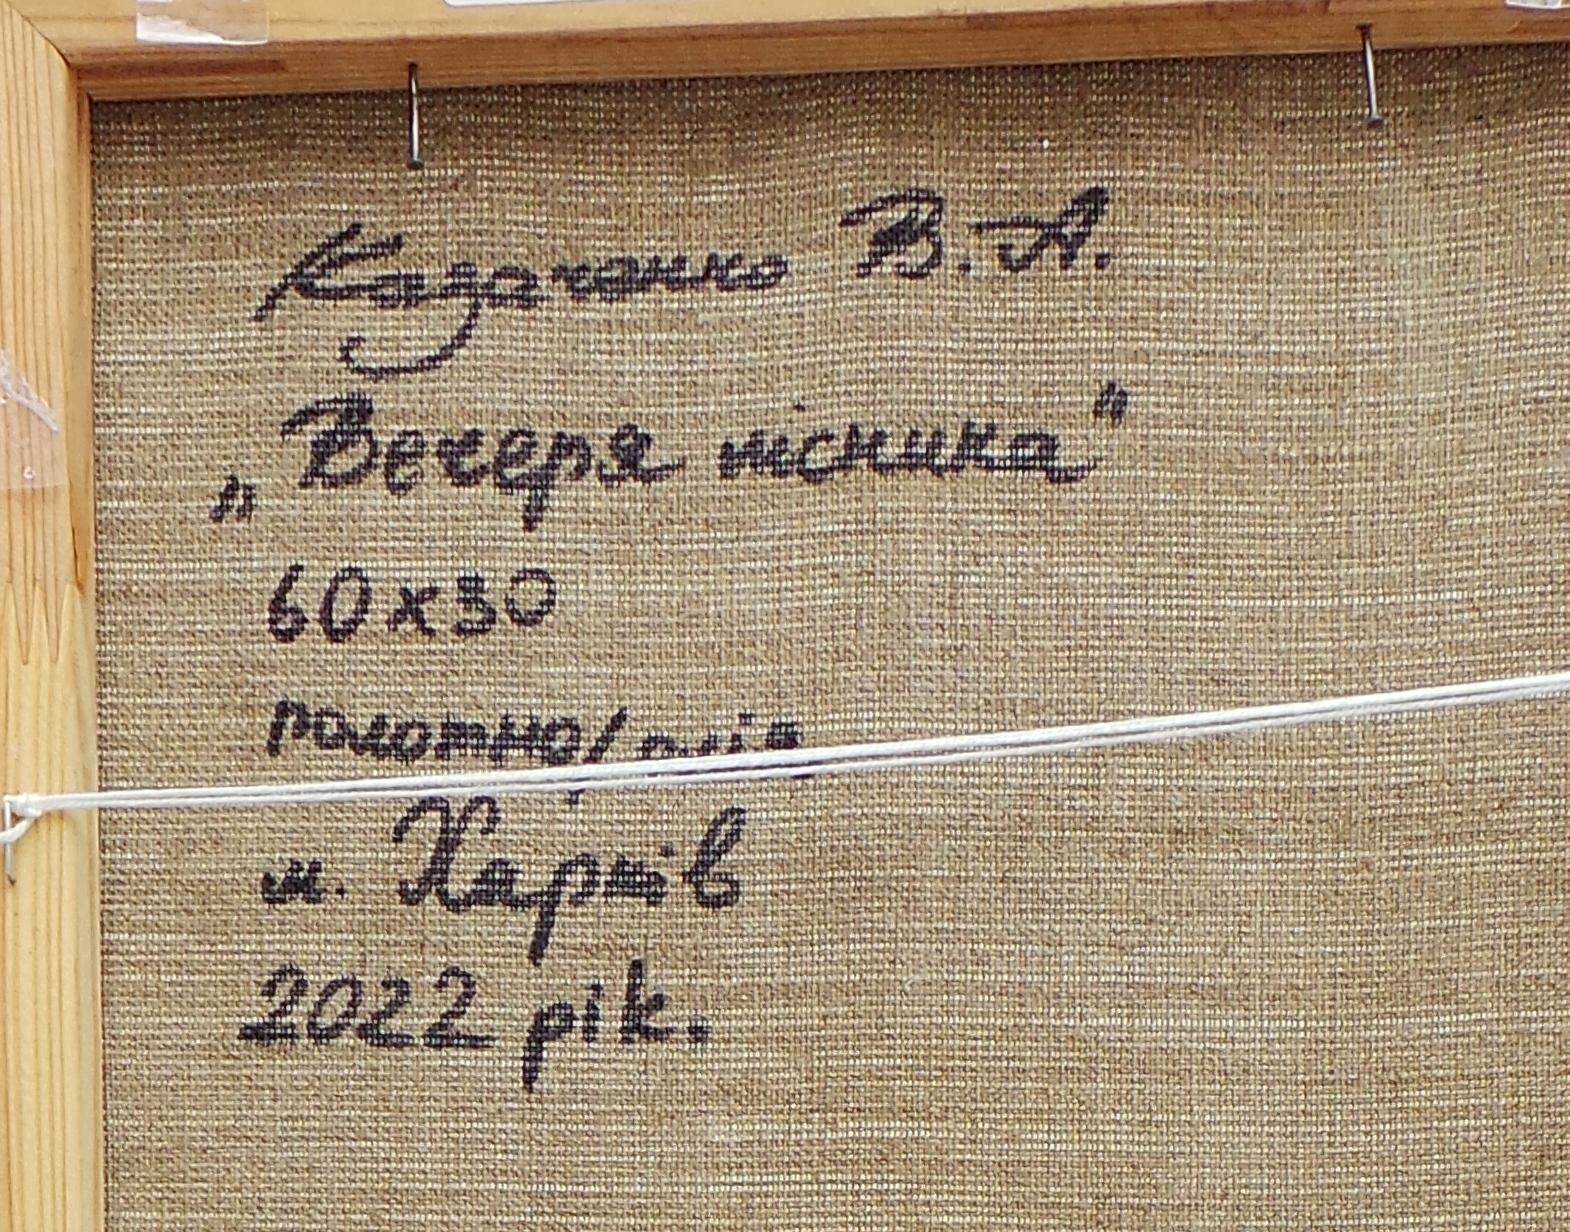 Казаченко В.А.
„Вечеря лісника"
60х30
полотно/олія
м. Харків
2022 рік.